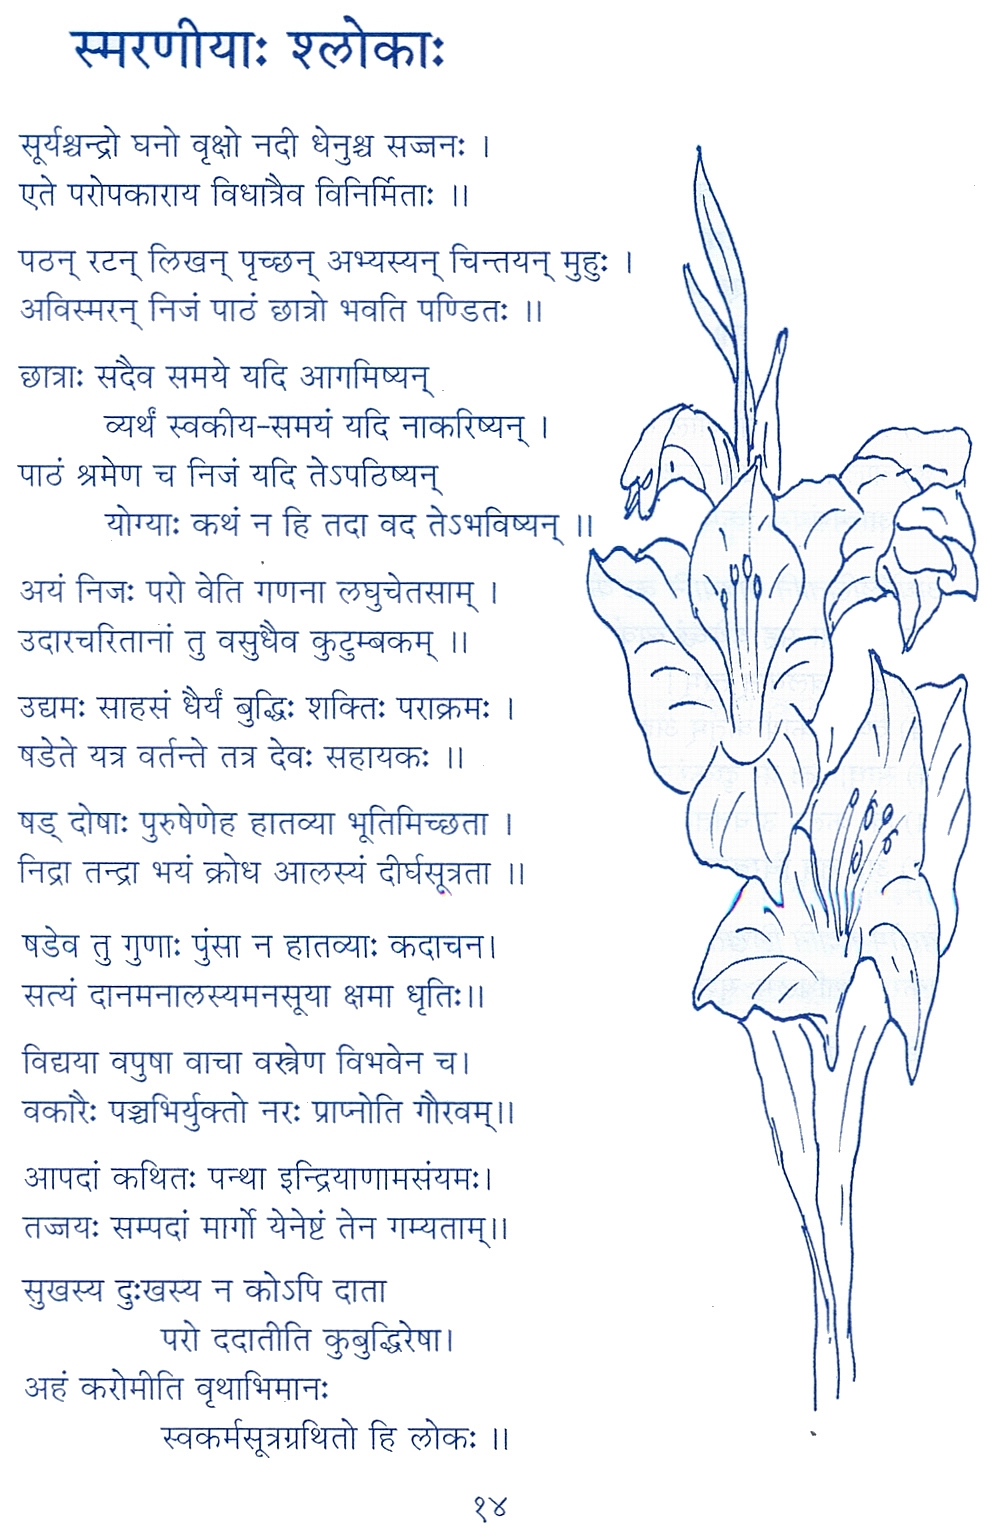 स्मरणीयाः श्लोकाः
सूर्यश्चन्द्रो घनो वृक्षो नदी धेनुश्च सज्जनः ।
एते परोपकाराय विधात्रैव विनिर्मिताः ।।
पठन् रटन् लिखन् पृच्छन् अभ्यस्यन् चिन्तयन् मुहुः ।
अविस्मरन् निजं पाठं छात्रो भवति पण्डितः ।।
छात्राः सदैव समये यदि आगमिष्यन्
व्यर्थं स्वकीय-समयं यदि नाकरिष्यन् ।
पाठं श्रमेण च निजं यदि तेऽपठिष्यन्
योग्याः कथं न हि तदा वद तेऽभविष्यन् ।।
अयं निजः परो वेति गणना लघुचेतसाम् ।
उदारचरितानां तु वसुधैव कुटुम्बकम् ।।
उद्यमः साहसं धैर्यं बुद्धिः शक्तिः पराक्रमः ।
षडेते यत्र वर्तन्ते तत्र देवः सहायकः ।।
षड् दोषाः पुरुषेणेह हातव्या भूतिमिच्छता ।
निद्रा तन्द्रा भयं क्रोध आलस्यं दीर्घसूत्रता ।।
षडेव तु गुणाः पुंसा न हातव्याः कदाचन।
सत्यं दानमनालस्यमनसूया क्षमा धृतिः।।
विद्यया वपुषा वाचा वस्त्रेण विभवेन च।
वकारैः पञ्चभिर्युक्तो नरः प्राप्नोति गौरवम्।।
आपदां कथितः पन्था इन्द्रियाणामसंयमः।
तज्जयः सम्पदां मार्गो येनेष्टं तेन गम्यताम्।।
सुखस्य दुःखस्य न कोऽपि दाता
परो ददातीति कुबुद्धिरेषा।
अहं करोमीति वृथाभिमानः
स्वकर्मसूत्रग्रथितो हि लोकः ।।
१४